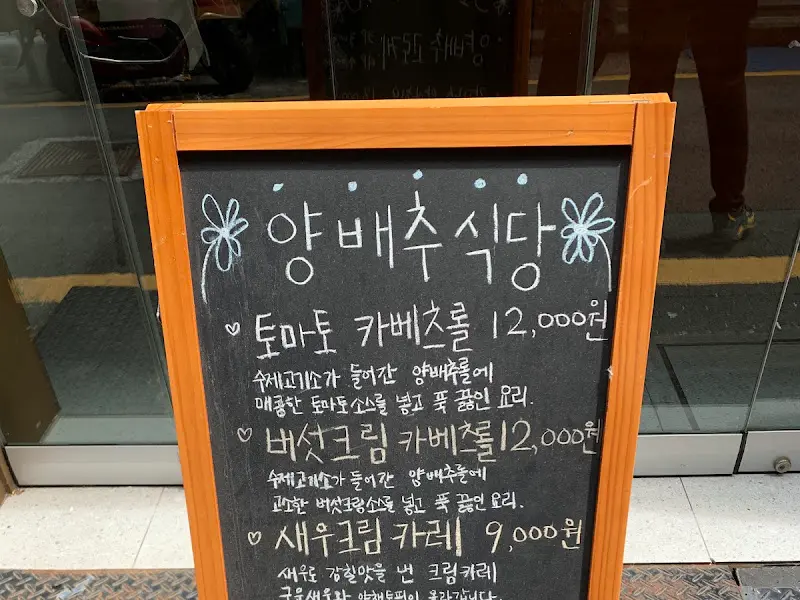 양배추식당
♡ 토마토 카베츠롤 12,000원
수제고기소가 들어간 양배추롤에
매콤한 토마토소스를 넣고 푹 끓인 요리.
♡ 버섯크림 카베츠롤 12,000원
수제고기소가 들어간 양배추롤에
고소한 버섯크림소스를 넣고 푹 끓인 요리.
♡ 새우크림 카레 9,000원
새우로 감칠맛을 낸 크림카레
구운새우와 야채토핑이 올라갑니다.